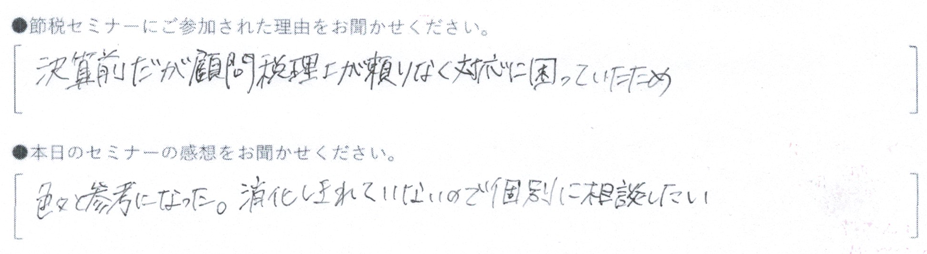 ●節税セミナーにご参加された理由をお聞かせください。
決算前だが顧問税理士が頼りなく対応に困っていたため
●本日のセミナーの感想をお聞かせください。
色々と参考になった。消化しきれていないので個別に相談したい